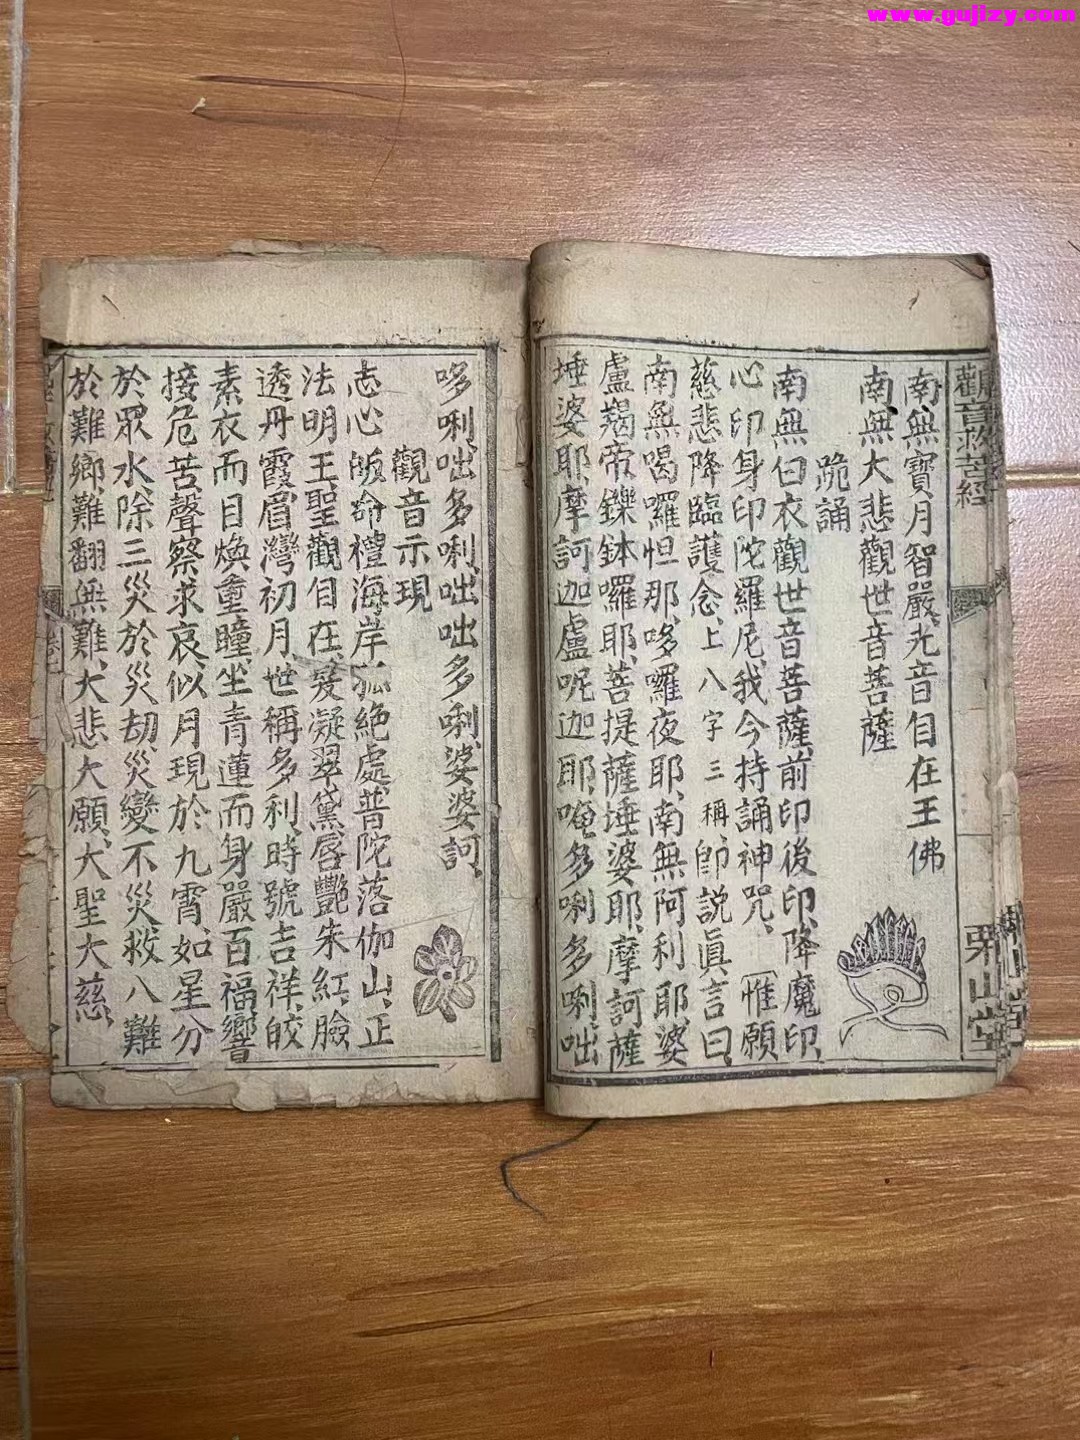 www.gujizy.com
觀音救苦經
栗山堂
南無寶月智嚴光音自在王佛
南無大悲觀世音菩薩
跪誦
南無白衣觀世音菩薩、前印後印、降魔印、
心印身印陀羅尼、我今持誦神咒、惟願
慈悲降臨護念、上八字三稱、卽説眞言曰、
南無喝囉怛那、哆囉夜耶、南無阿利耶、婆
盧羯帝、鑠鉢囉耶、菩提薩埵婆耶、摩訶薩
埵婆耶、摩訶迦盧呢迦耶、唵、多唎、多唎、咄
哆唎、咄多唎、咄咄多唎、娑婆訶、
觀音示現
志心皈命禮、海岸孤絶處、普陀落伽山、正
法明王、聖觀自在、髮凝翠黛、唇艷朱紅、臉
透丹霞、眉灣初月、世稱多利、時號吉祥、皎
素衣而目煥重瞳、坐青蓮而身嚴百福、響
接危苦、聲察求哀、似月現於九霄、如星分
於眾水、除三災於災刧、災變不災、救八難
於難鄉、難翻無難、大悲大願、大聖大慈、